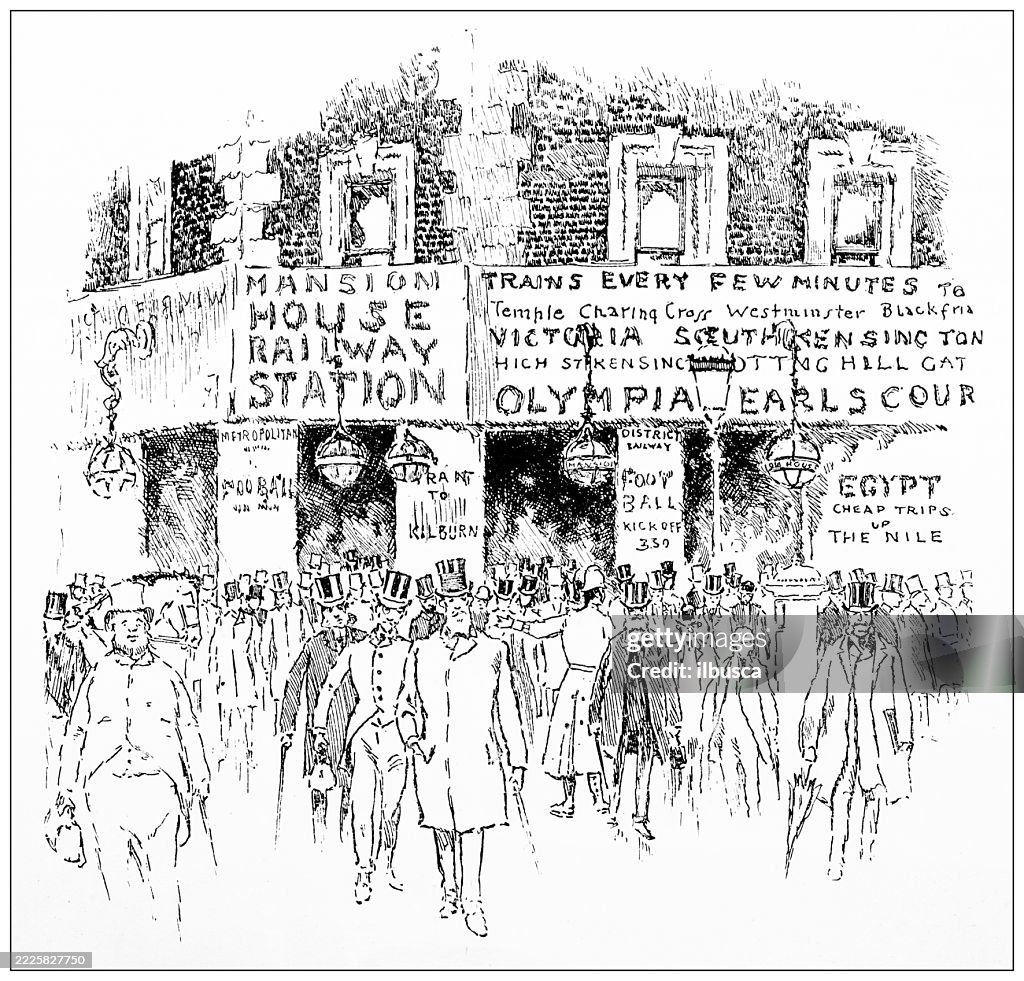 MANSION
HOUSE
RAILWAY
STATION
TRAINS EVERY FEW MINUTES TO
Temple Charing Cross Westminster Blackfria
VICTORIA SOUTH KENSINGTON
HIGH ST KENSING OTTING HILL GAT
OLYMPIA EARLS COUR
METROPOLITAN
FOO BALL
TO
KILBURN
DISTRICT
RAILWAY
FOOT
BALL
KICK OFF
3.30
MANSION
HOUSE
EGYPT
CHEAP TRIPS
UP
THE NILE
gettyimages
Credit: ilbusca
2225827750